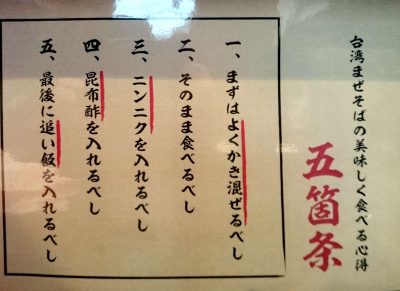 台湾まぜそばの美味しく食べる心得
五箇条
一、まずはよくかき混ぜるべし
二、そのまま食べるべし
三、ニンニクを入れるべし
四、昆布酢を入れるべし
五、最後に追い飯を入れるべし